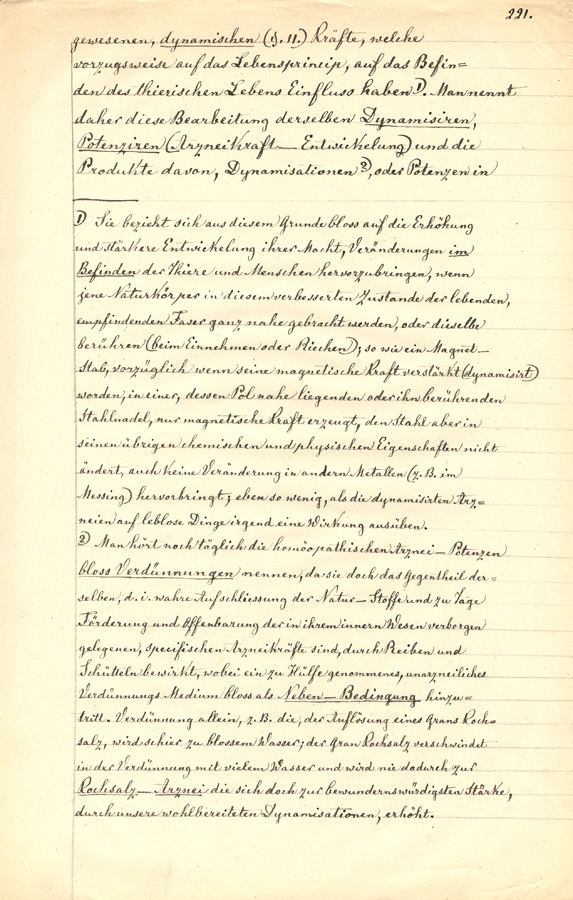 221.
gewesenen, dynamischen (§. 11.) Kräfte, welche
vorzugsweise auf das Lebensprincip, auf das Befin=
den des thierischen Lebens Einfluss haben 1). Man nennt
daher diese Bearbeitung derselben Dynamisiren,
Potenziren (Arzneikraft — Entwickelung) und die
Produkte davon, Dynamisationen 2), oder Potenzen in
1) Sie bezieht sich aus diesem Grunde bloss auf die Erhöhung
und stärkere Entwickelung ihrer Macht, Veränderungen im
Befinden der Thiere und Menschen hervorzubringen, wenn
jene Naturkörper in diesem verbesserten Zustande der lebenden,
empfindenden Faser ganz nahe gebracht werden, oder dieselbe
berühren (beim Einnehmen oder Riechen); so wie ein Magnet—
Stab, vorzüglich wenn seine magnetische Kraft verstärkt (dynamisirt)
worden, in einer, dessen Pol nahe liegenden oder ihn berührenden
Stahlnadel, nur magnetische Kraft erzeugt, den Stahl aber in
seinen übrigen chemischen und physischen Eigenschaften nicht
ändert, auch keine Veränderung in andern Metallen (z. B. im
Messing) hervorbringt; eben so wenig, als die dynamisirten Arz=
neien auf leblose Dinge irgend eine Wirkung ausüben.
2) Man hört noch täglich die homöopathischen Arznei — Potenzen
bloss Verdünnungen nennen, da sie doch das Gegentheil der=
selben, d. i. wahre Aufschliessung der Natur — Stoffe und zu Tage
Förderung und Offenbarung der in ihrem innern Wesen verborgen
gelegenen, specifischen Arzneikräfte sind, durch Reiben und
Schütteln bewirkt, wobei ein zu Hülfe genommenes, unarzneiliches
Verdünnungs Medium bloss als Neben — Bedingung hinzu=
tritt. Verdünnung allein, z. B. die, der Auflösung eines Grans Koch=
salz, wird schier zu blossem Wasser; der Gran Kochsalz verschwindet
in der Verdünnung mit vielem Wasser und wird nie dadurch zur
Kochsalz — Arznei die sich doch zur bewundernswürdigsten Stärke,
durch unsere wohlbereiteten Dynamisationen, erhöht.